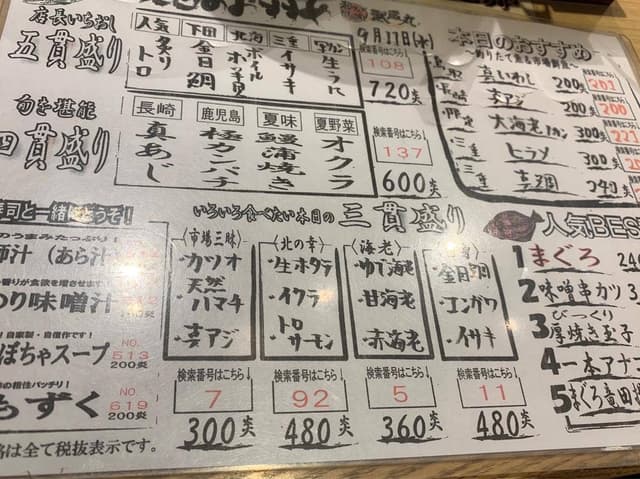 店長いちおし
五貫盛り
人気 炙りトロ
下田 金目鯛
北海 ボイルホッキ貝
三重 イサキ
生うに
9月11日(水)
検索番号はこちら↓
108
720円
旬を堪能
四貫盛り
長崎 真あじ
鹿児島 極カンパチ
夏味 鰻蒲焼き
夏野菜 オクラ
検索番号はこちら↓
137
600円
本日のおすすめ
〜釣りたて直る市場鮮魚〜
長崎
真いわし 200円
201
真アジ 200円
200
大海老フカン 300円
三重 ヒラメ 300円
三重 真鯛 240円
寿司と一緒にどうぞ!
のうまみたっぷり!
師汁(あら汁)
香りが食欲を増させます!
のり味噌汁
自家製・自信作です!
ぼちゃスープ
NO. 513
200円
の相性バッチリ!
もずく
NO. 619
200円
格は全て税抜表示です。
いろいろ食べたい本日の三貫盛り
(市場三昧)
・カツオ
・天然ハマチ
・真アジ
検索番号はこちら↓
7
300円
(北の幸)
・生ホタテ
・イクラ
・トロサーモン
検索番号はこちら↓
92
480円
(海老)
・ゆで海老
・甘海老
・赤海老
検索番号はこちら↓
5
360円
・金目鯛
・エンガワ
・イサキ
検索番号はこちら↓
11
480円
人気BES
1 まぐろ 240
2 味噌串カツ
3 びっくり厚焼き玉子
4 一本アナ
5 まぐろ竜田揚